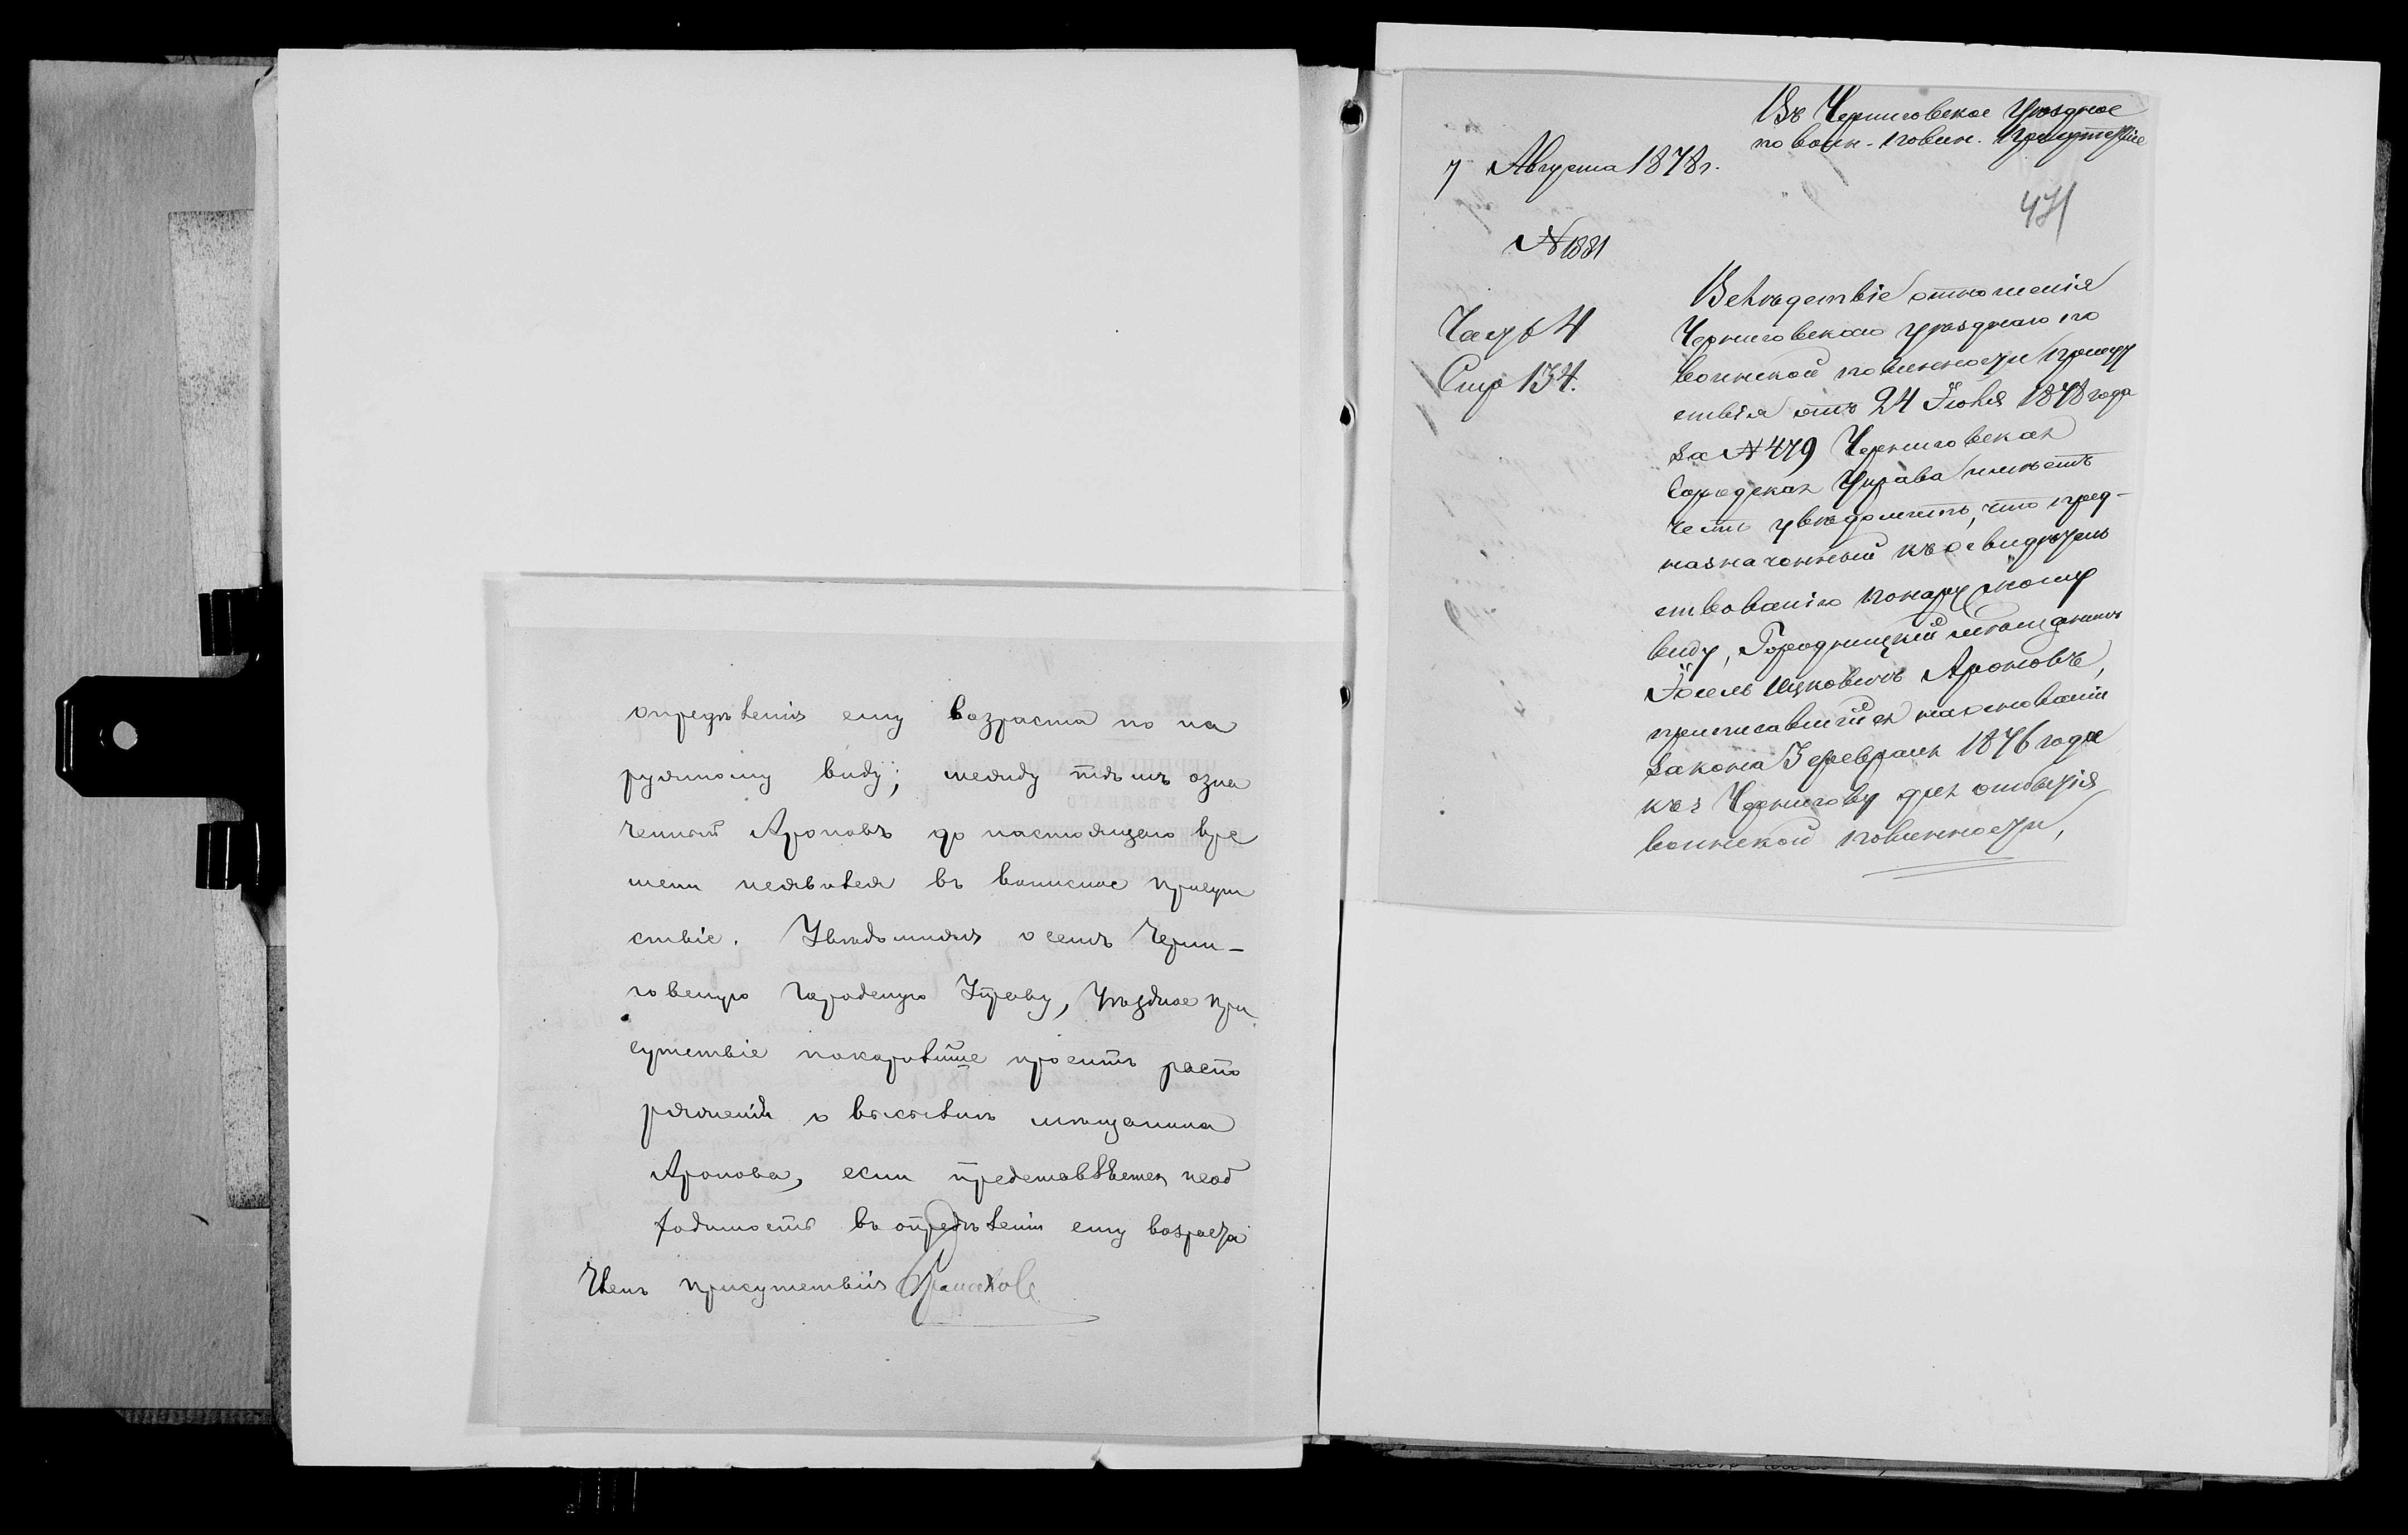 опредѣленія ему возраста по на
ружному виду; между тѣмъ озна
ченный Ароновъ до настоящаго вре
мени неявился въ воинское присут
ствіе. Увѣдомляя о семъ Черни-
говскую Городскую Управу, Уѣздное При
сутствіе покорнѣйше проситъ распо
ряженія о высылкѣ мѣщанина
Аронова, если представляется необ
ходимость въ опредѣленіи ему возраста
Членъ присутствія
Въ Черниговское Уѣздное
по воин. повин. Присутствіе
7 Августа 1878 г.
471
№ 1881
Часть 4
Стр 134.
Вслѣдствіе отношенія
Черниговскаго уѣзднаго по
воинской повинности присут
ствія отъ 24 Іюля 1878 года
за № 479 Черниговская
Городская Управа имѣетъ
честь увѣдомить, что пред-
назначенный къ освидѣтель
ствованію по наружному
виду, Городницкій мѣщанинъ
Іосель Ицковичъ Ароновъ,
приписавшійся на основаніи
закона 3 февраля 1876 года
къ г Чернигову для отбытія
воинской повинности,